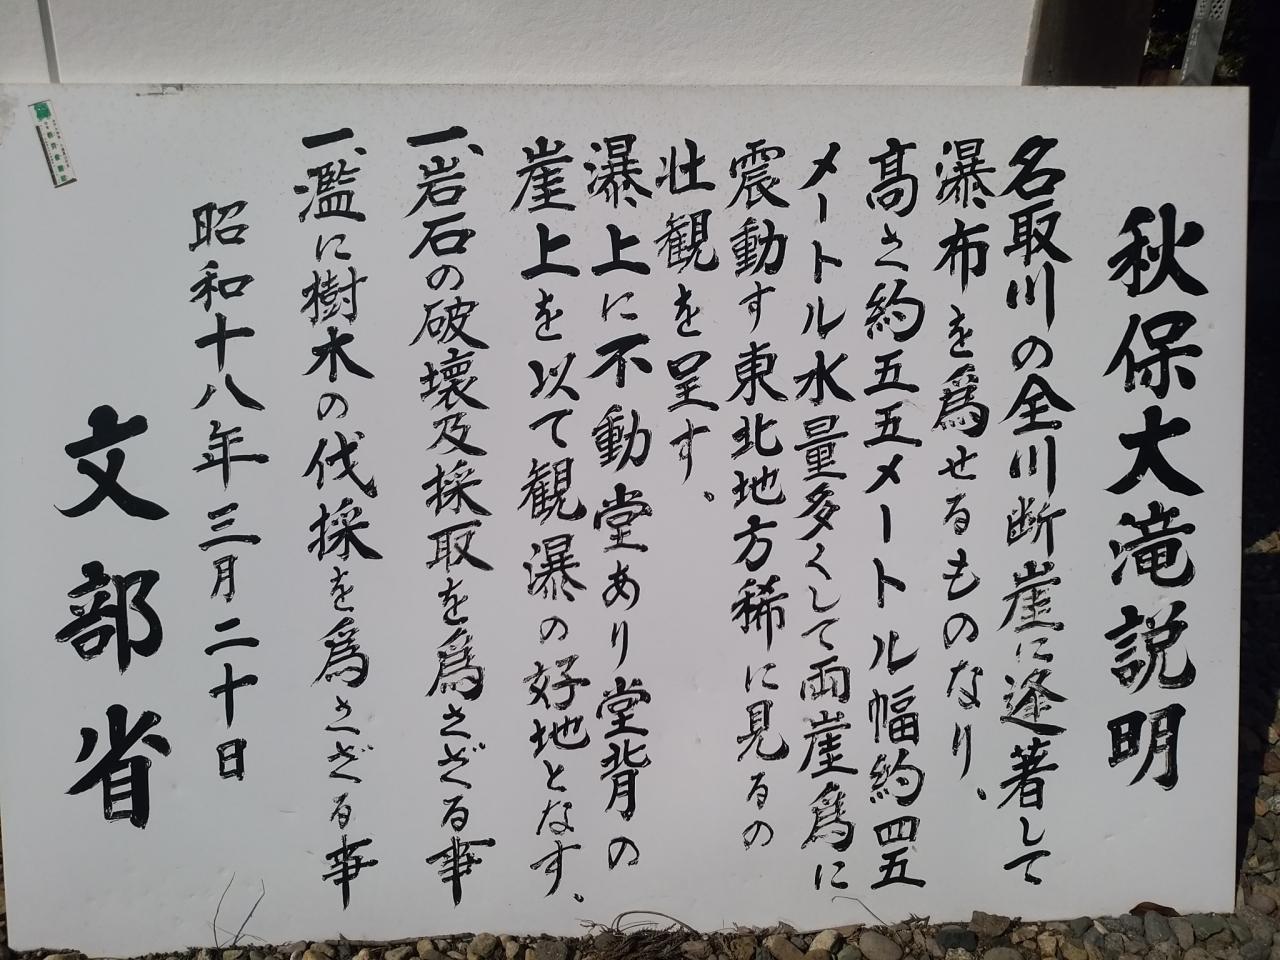 秋保大滝説明
名取川の全川断崖に逢著して
瀑布を為せるものなり、
髙さ約五五メートル幅約四五
メートル水量多くして両崖為に
震動す東北地方稀に見るの
壮観を呈す、
瀑上に不動堂あり堂背の
崖上を以て観瀑の好地となす、
一、岩石の破壊及採取を為さざる事
一、濫に樹木の伐採を為さざる事
昭和十八年三月二十日
文部省